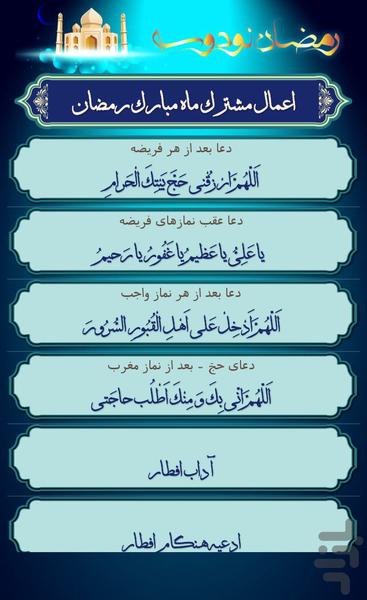 رمضان نود و سه
اعمال مشترك ماه مبارك رمضان
دعا بعد از هر فریضه
اَللّٰهُمَّ ارْزُقْنی حَجَّ بَیْتِكَ الْحَرامِ
دعا عقب نمازهای فریضه
یا عَلِیُّ یا عَظیمُ یا غَفُورُ یا رَحیمُ
دعا بعد از هر نماز واجب
اَللّٰهُمَّ اَدْخِلْ عَلی اَهْلِ الْقُبُورِ السُّرُورَ
دعای حج - بعد از نماز مغرب
اَللّٰهُمَّ اِنّی بِكَ وَ مِنْكَ اَطْلُبُ حاجَتی
آداب افطار
ادعیه هنگام افطار
بازار